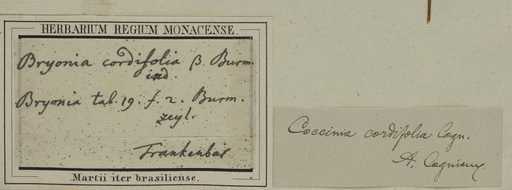 HERBARIUM REGIUM MONACENSE
Bryonia cordifolia β. Burm.
ind.
Bryonia tab. 19. f. 2. Burm.
zeyl.
Martii iter brasiliense.
Coccinia cordifolia Cogn.
A. Cogniaux